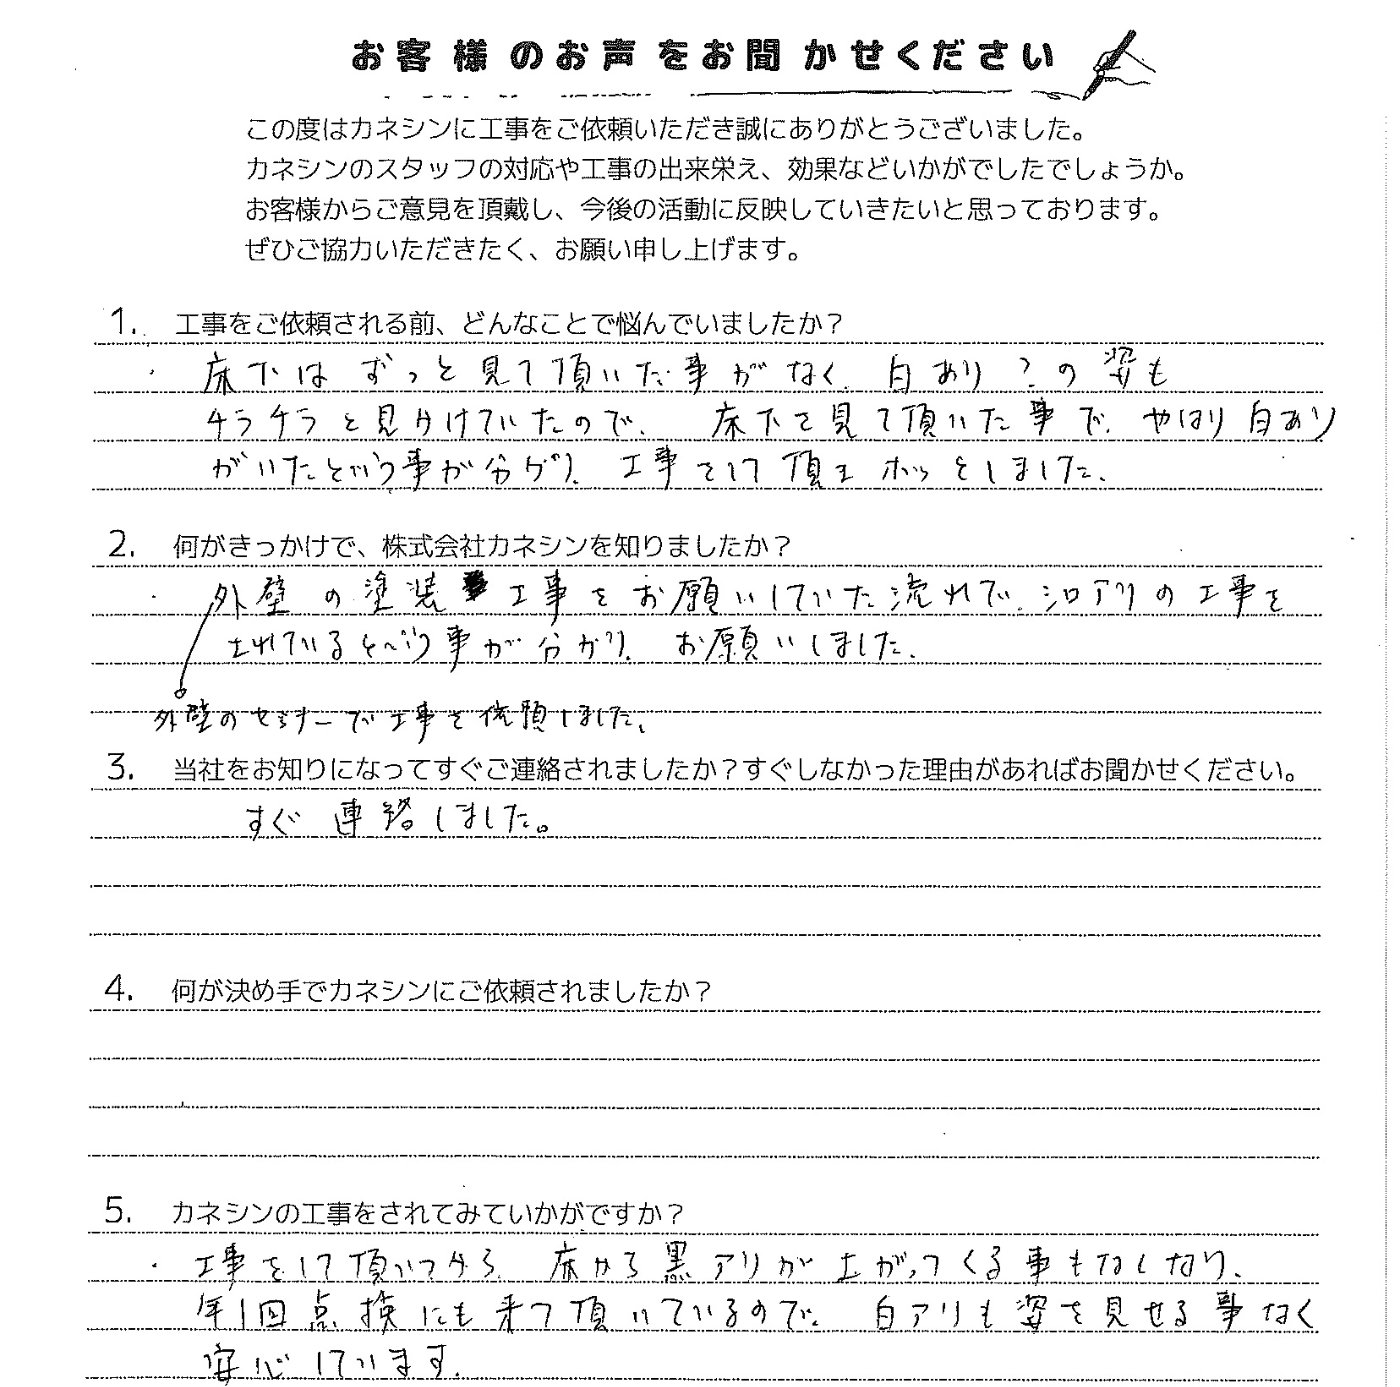 お客様のお声をお聞かせください
この度はカネシンに工事をご依頼いただき誠にありがとうございました。
カネシンのスタッフの対応や工事の出来栄え、効果などいかがでしたでしょうか。
お客様からご意見を頂戴し、今後の活動に反映していきたいと思っております。
ぜひご協力いただきたく、お願い申し上げます。
1. 工事をご依頼される前、どんなことで悩んでいましたか？
・ 床下は ずっと 見て頂いた事がなく、白あり？の 姿も
チラチラと見かけていたので、 床下を見て頂いた事で、やはり白あり
がいたという事が分かり、工事をして頂き ホッとしました。
2. 何がきっかけで、株式会社カネシンを知りましたか？
・ 外壁の塗装 工事をお願いしていた流れで、シロアリの工事を
されているという事が分かり、 お願いしました。
外壁のセミナーで工事を依頼しました。
3. 当社をお知りになってすぐご連絡されましたか？すぐしなかった理由があればお聞かせください。
すぐ 連絡しました。
4. 何が決め手でカネシンにご依頼されましたか？
5. カネシンの工事をされてみていかがですか？
・ 工事をして頂いてから、床から黒アリが上がってくる事もなくなり、
年1回点検にも来て頂いているので、 白アリも姿を見せる事なく
安心しています。